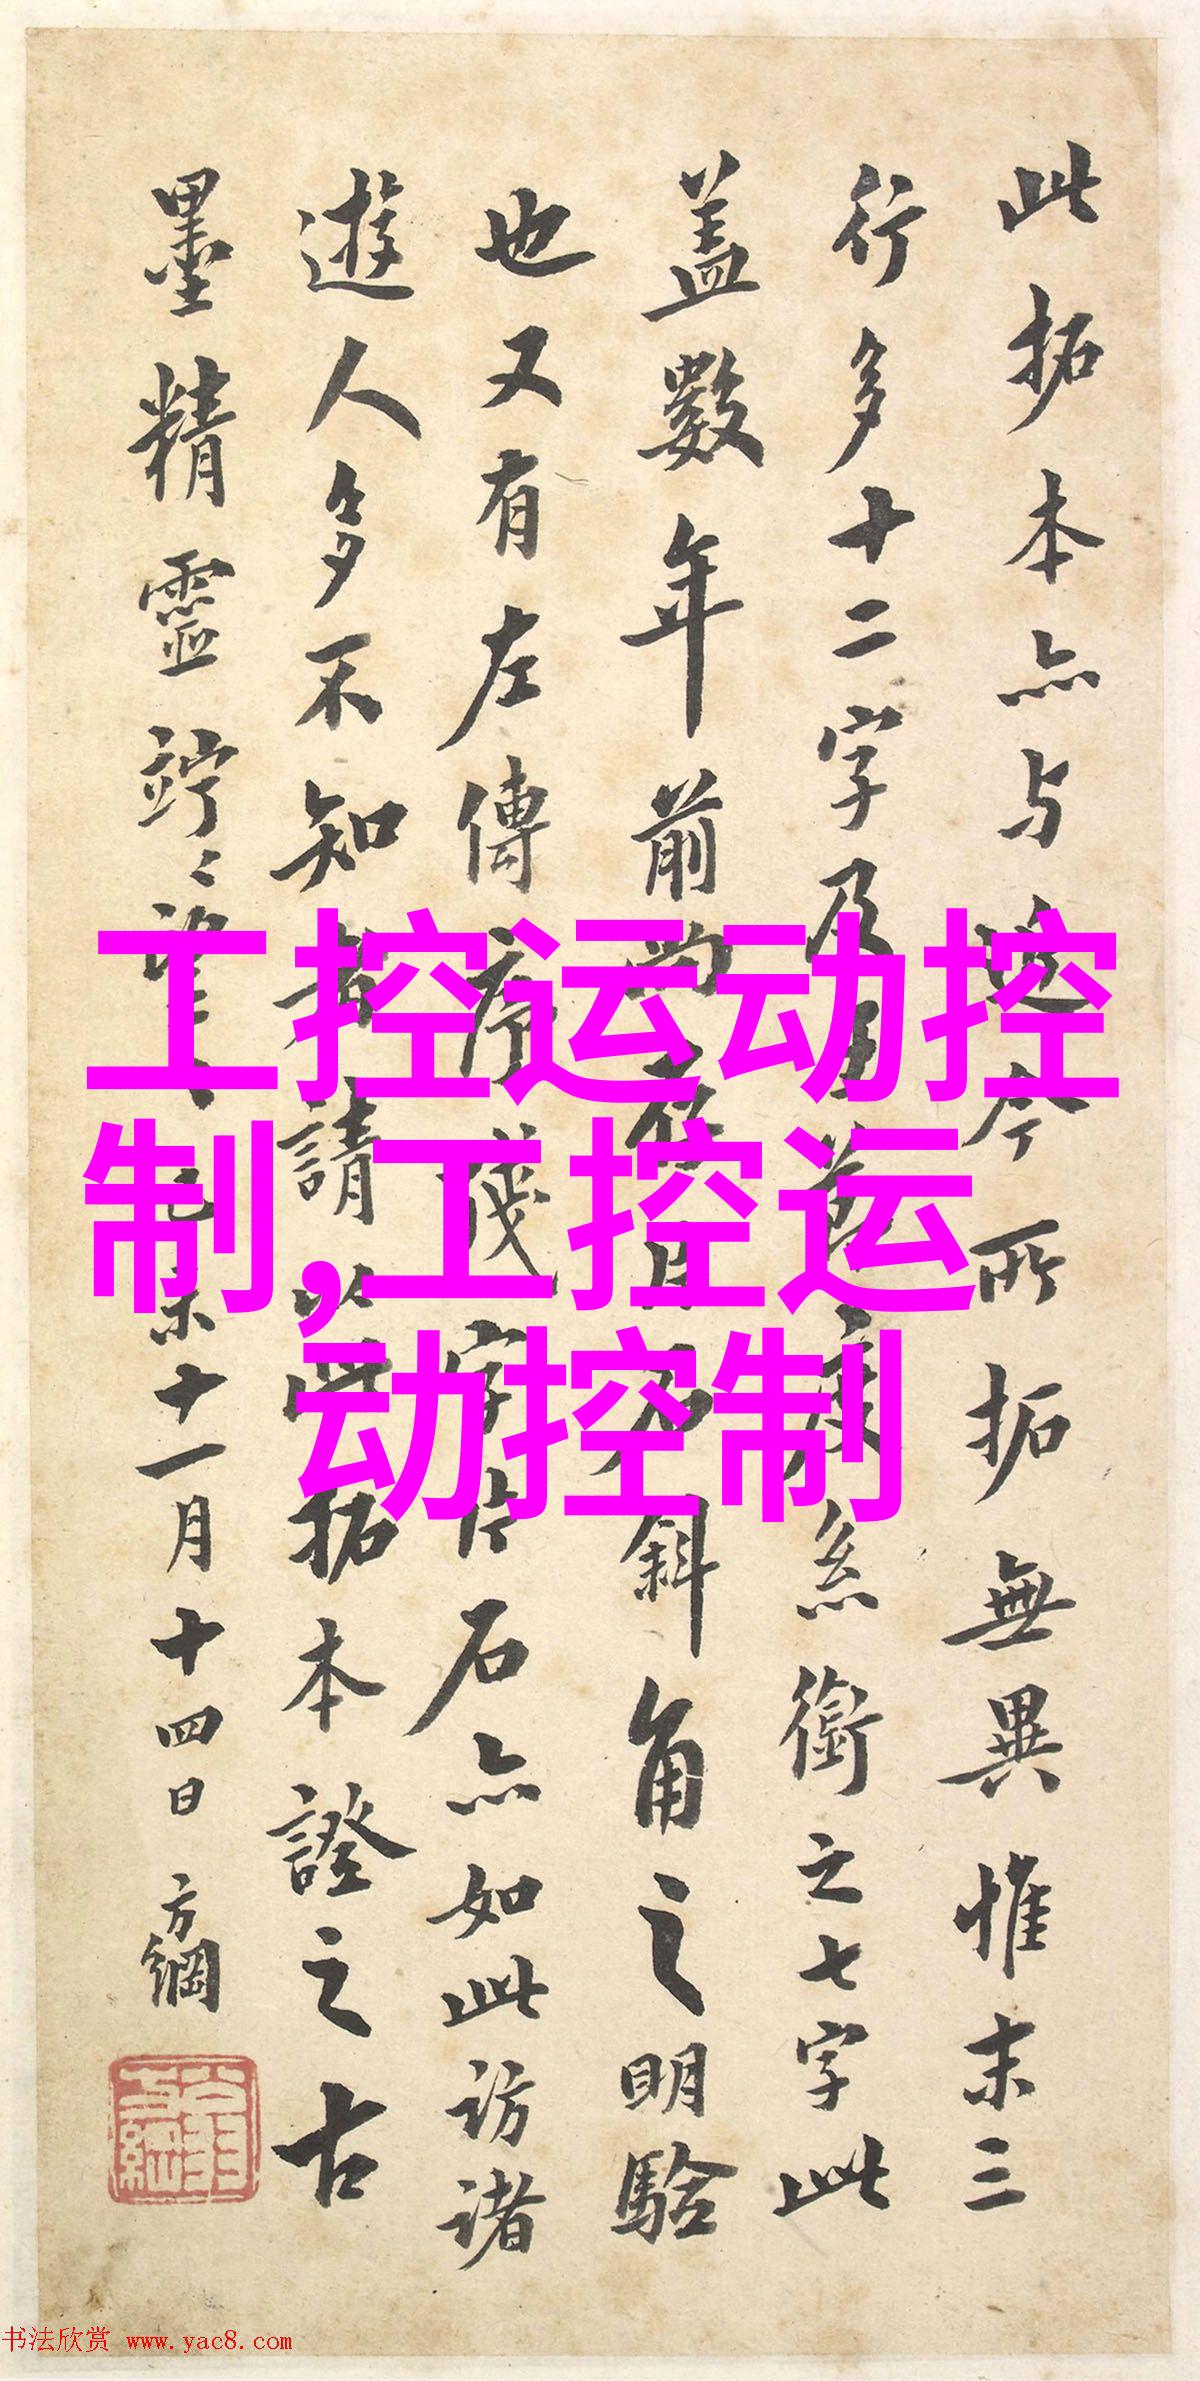 此拓本亦与迩今所拓無異惟末三
行多十二字及
糸衔之七字此
盖數年前
斜角之明驗
也又有左傳序
石亦如此訪諸
遊人多不知
請以此拓本證之古
墨精靈竚〻
十一月十四日 方綱
工控运动控
制,工控运
动控制
书法欣赏 www.yac8.com